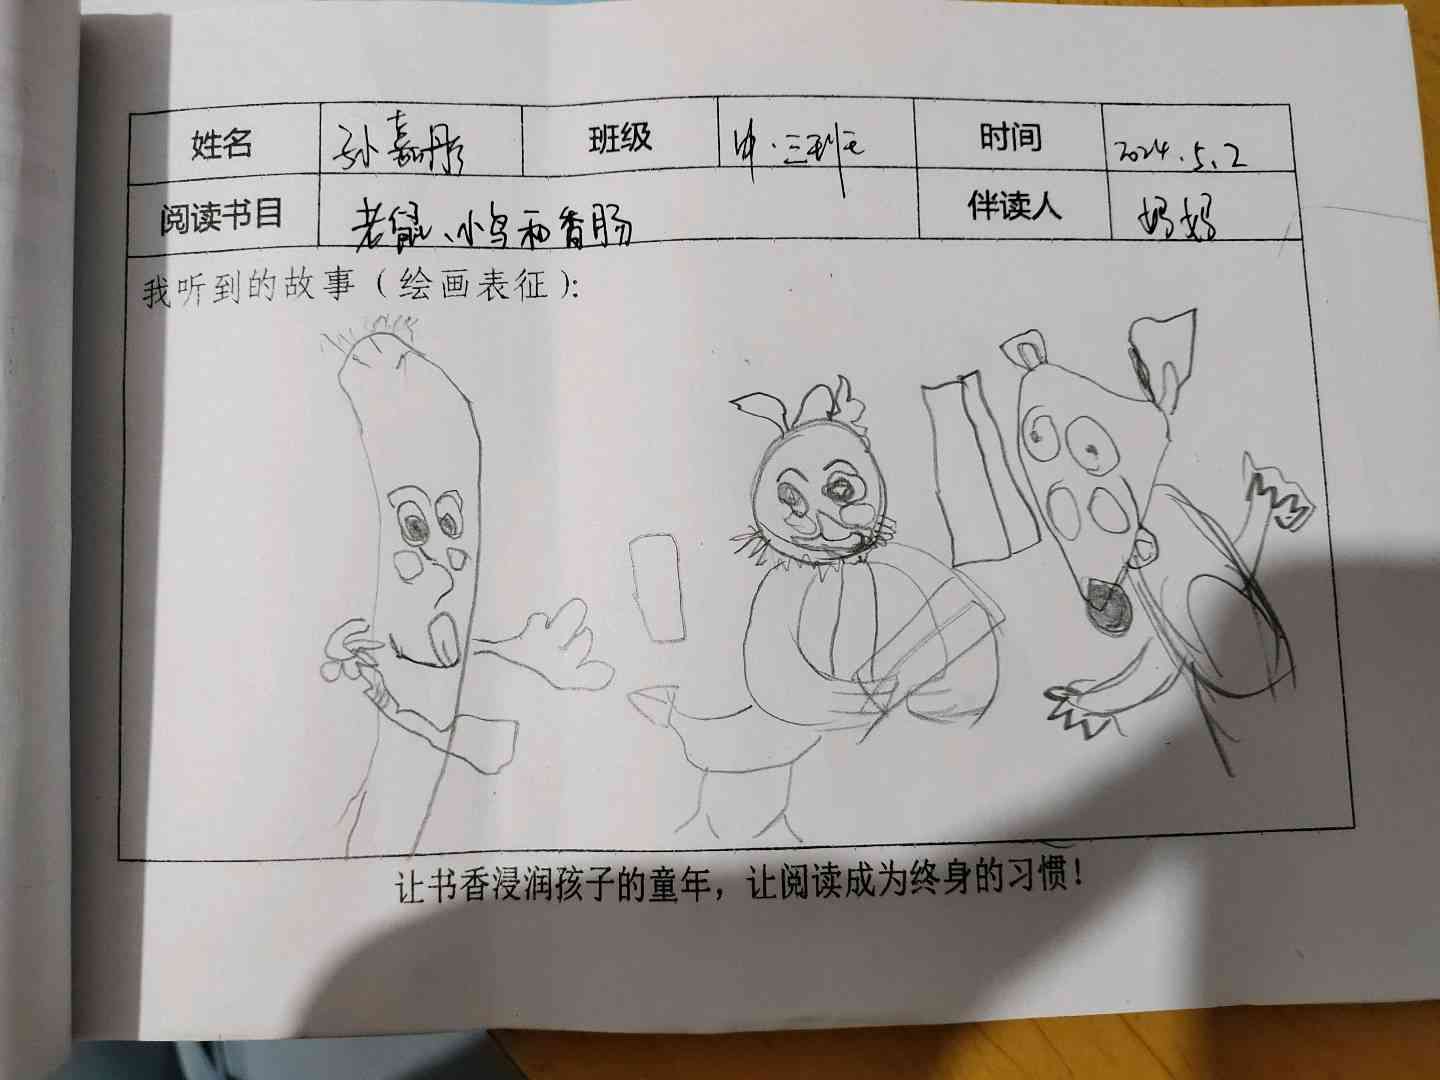 姓名 孙嘉彤 班级 中.三班 时间 2024.5.2
阅读书目 老鼠、小鸟和香肠 伴读人 妈妈
我听到的故事（绘画表征）：
让书香浸润孩子的童年，让阅读成为终身的习惯！